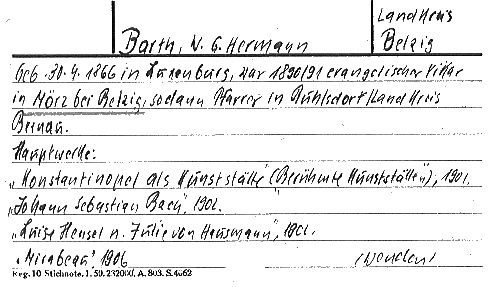 Landkreis
Barth, W. G. Hermann
Belzig
geb. 30. 4. 1866 in Luxemburg, war 1890/91 evangelischer Vikar
in Mörz bei Belzig, sodann Pfarrer in Ruhlsdorf/Landkreis
Bernau.
Hauptwerke:
„Konstantinopel als Kunststätte" (Berühmte Kunststätten"), 1901.
„Johann Sebastian Bach", 1902.
„Luise Hensel n. Julie von Hausmann", 1902.
„Mirabeau", 1906
Reg. 10 Stichnote. 1. 50. 232000. A. 803. S. 4062